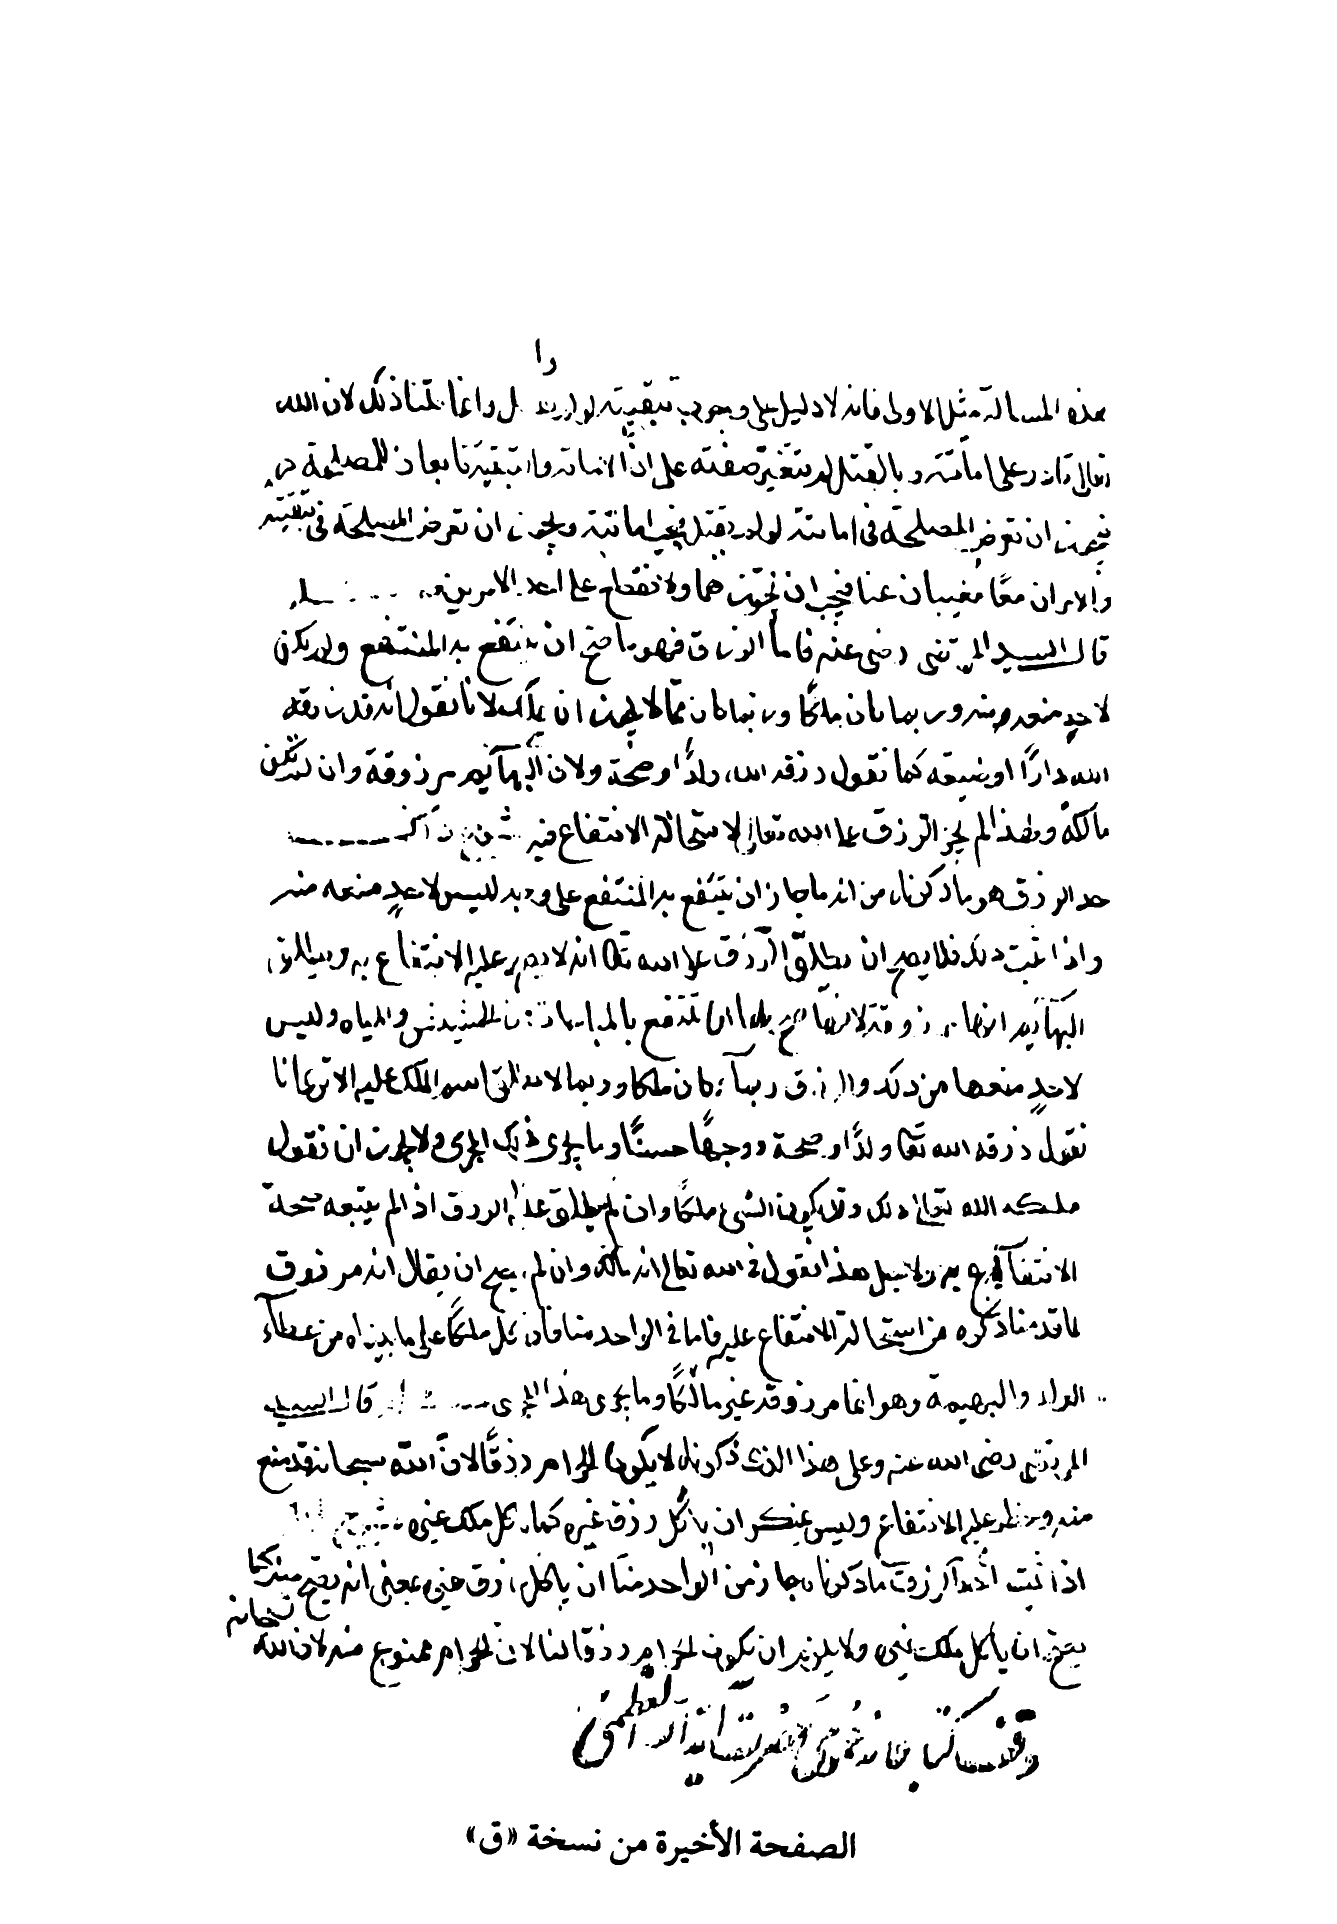 هذه المسالة مثل الاولى فانه لا دليل على وجوب تبقيته لو لم وانما قلنا ذلك لان الله
تعالى قادر على اماتته وبالقتل لم يتغير صفته على ان الاماتة والتبقية تابعان للمصلحة
ان تعرض المصلحة فى اماتته لو لم يقتل فيجب اماتته ويجوز ان تعرض المصلحة فى تبقيته
والامران معًا مغيبان عنا فيجب ان نجوزهما ولا نقطع على احد الامرين
قال السيد المرتضى رضى عنه فاما الرزق فهو ما صح ان ينتفع به المنتفع ولم يكن
لاحدٍ منعه منه وربما كان ملكًا وربما كان ممّا لا يجوز ان يملك لانا نقول انه قد رزقه
الله دارًا او ضيعه كما نقول رزقه الله ولدًا او صحة ولان البهائم مرزوقة وان لم تكن
مالكةً ولهذا لم يجز الرزق على الله تعالى لاستحالة الانتفاع فيه
حد الرزق هو ما ذكرناه من انه ما جاز ان ينتفع به المنتفع على وجه ليس لاحدٍ منعه منه
واذا ثبت ذلك فلا يصح ان يطلق الرزق على الله تعا انه لا يصح عليه الانتفاع به
البهائم انها مرزوقة لانها يصح ان تنتفع بالمباحات من الحشيش والمياه وليس
لاحدٍ منعها من ذلك والرزق ربما كان ملكا وربما لا يطلق اسم الملك عليه الا ترى انا
نقول رزقه الله تعا ولدًا وصحة وزوجهًا حسنًا وما يجرى ذلك المجرى ولا يجوز ان نقول
ملكه الله تعالى ذلك وقد يكون الشىء ملكًا وان لم يطلق عليه الرزق اذا لم يتبعه صحة
الانتفاع به ولاجل هذا نقول فى الله تعالى انه مالك وان لم يصح ان يقال انه مرزوق
لما قدمنا ذكره من استحالة الانتفاع عليه فاما فى الواحد منا فان كل ملكًا على ما بيناه من عطاء
الولد والبهيمة وهو انما مرزوقه غير مالكًا وما يجرى هذا المجرى قال السيد
المرتضى رضى الله عنه وعلى هذا الذى ذكرناه لا يكون الحرام رزقًا لانّ الله سبحانه قد منع
منه وحظر عليه الانتفاع وليس ينكر ان يأكل رزق غيره كما يأكل ملك غيره
اذا ثبت ان الرزق ما ذكرناه جاز من الواحد منّا ان يأكل رزق غيره بمعنى انه يصح منه كما
يصح ان يأكل ملك غيره ولا يلزم ان يكون الحرام رزقا لنا لان الحرام ممنوع منه لان الله سبحانه
كتابخانه عمومى آية الله العظمى
الصفحة الأخيرة من نسخة «ق»